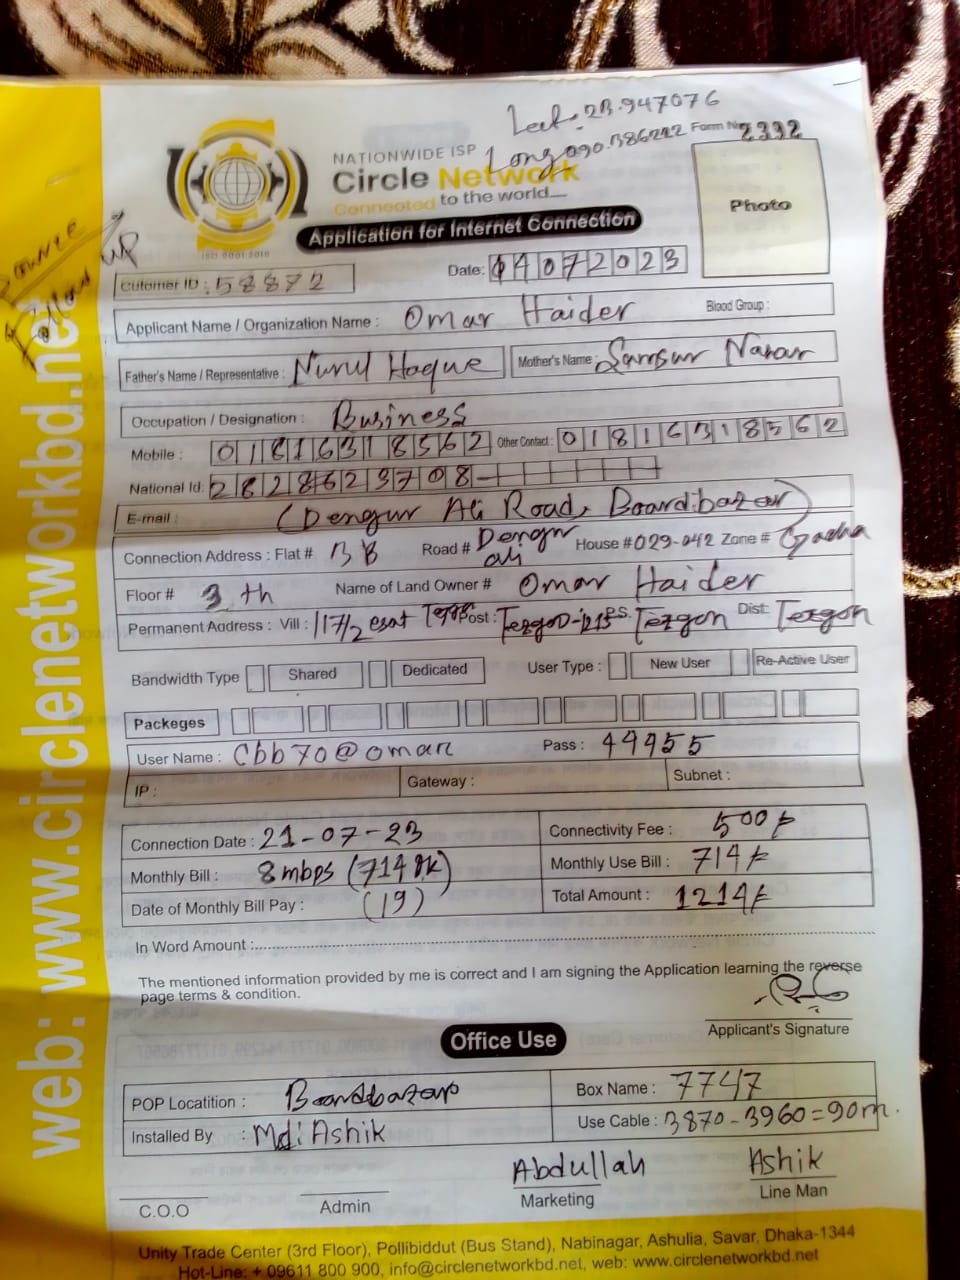 Form No 2332
Long 090.386242
NATIONWIDE ISP
Circle Network
Connected to the world....
ISO 9001:2015
Application for Internet Connection
Photo
Cutomer ID : 58872
Date: 14072023
Applicant Name / Organization Name : Omar Haider Blood Group :
Father's Name / Representative : Nurul Haque Mother's Name :
Occupation / Designation : Business
Mobile : 01816318562 Other Contact : 01816318562
National Id: 2828623708
E-mail : (Dengur Ali Road, Boardbazar)
Connection Address : Flat # 3B Road # Dengur Ali House # 029-042 Zone # Gacha
Floor # 3 th Name of Land Owner # Omar Haider
Permanent Address : Vill : 117/2 Post : P.S. Tezgon Dist: Tezgon
Bandwidth Type Shared Dedicated User Type : New User Re-Active User
Packeges
User Name : Cbb70@omar Pass : 49955
IP : Gateway : Subnet :
Connection Date : 21-07-23 Connectivity Fee : 500/-
Monthly Bill : 8 mbps (714 tk) Monthly Use Bill : 714/-
Date of Monthly Bill Pay : (19) Total Amount : 1214/-
In Word Amount :
The mentioned information provided by me is correct and I am signing the Application learning the reverse
page terms & condition.
Applicant's Signature
Office Use
POP Locatition : Boardbazar Box Name : 7747
Installed By : Md: Ashik Use Cable : 3870-3960=90m.
Abdullah Ashik
C.O.O Admin Marketing Line Man
Unity Trade Center (3rd Floor), Pollibiddut (Bus Stand), Nabinagar, Ashulia, Savar, Dhaka-1344
Hot-Line: + 09611 800 900, info@circlenetworkbd.net, web: www.circlenetworkbd.net
web: www.circlenetworkbd.net